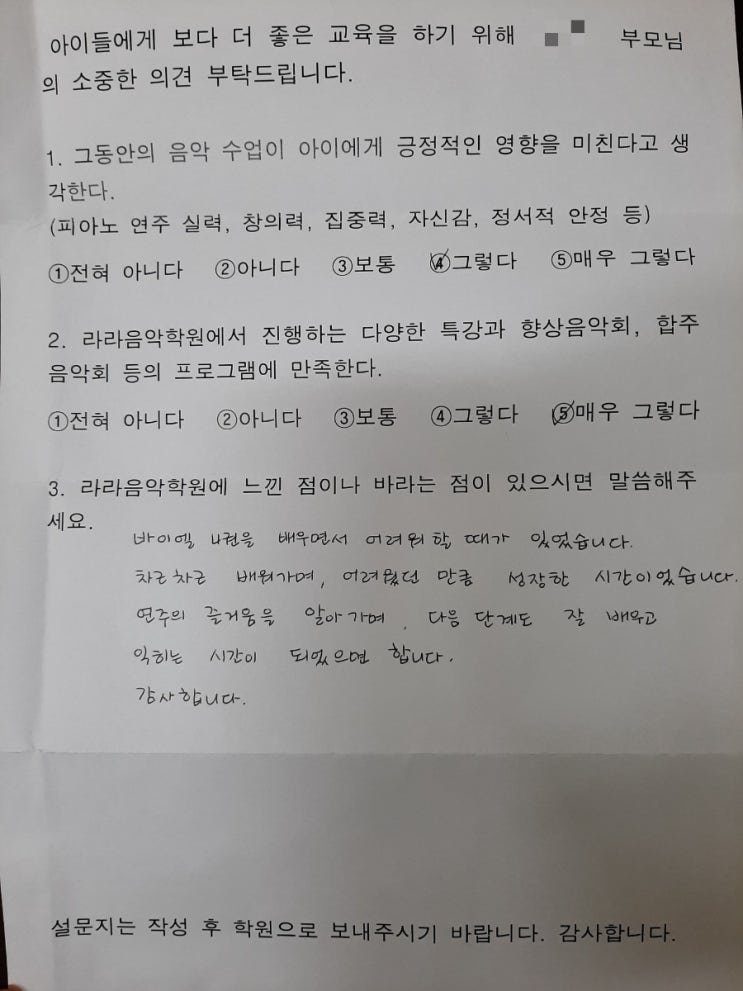 아이들에게 보다 더 좋은 교육을 하기 위해 부모님
의 소중한 의견 부탁드립니다.
1. 그동안의 음악 수업이 아이에게 긍정적인 영향을 미친다고 생
각한다.
(피아노 연주 실력, 창의력, 집중력, 자신감, 정서적 안정 등)
①전혀 아니다 ②아니다 ③보통 ④그렇다 ⑤매우 그렇다
2. 라라음악학원에서 진행하는 다양한 특강과 향상음악회, 합주
음악회 등의 프로그램에 만족한다.
①전혀 아니다 ②아니다 ③보통 ④그렇다 ⑤매우 그렇다
3. 라라음악학원에 느낀 점이나 바라는 점이 있으시면 말씀해주
세요.
바이엘 4권을 배우면서 어려워 할 때가 있었습니다.
차근차근 배워가며, 어려웠던 만큼 성장한 시간이었습니다.
연주의 즐거움을 알아가며, 다음 단계도 잘 배우고
익히는 시간이 되었으면 합니다.
감사합니다.
설문지는 작성 후 학원으로 보내주시기 바랍니다. 감사합니다.